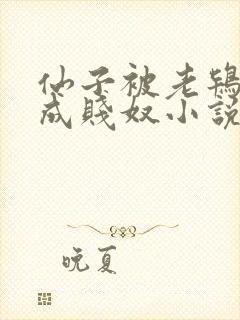 仙子被老鴇
成賤奴小說
晚夏